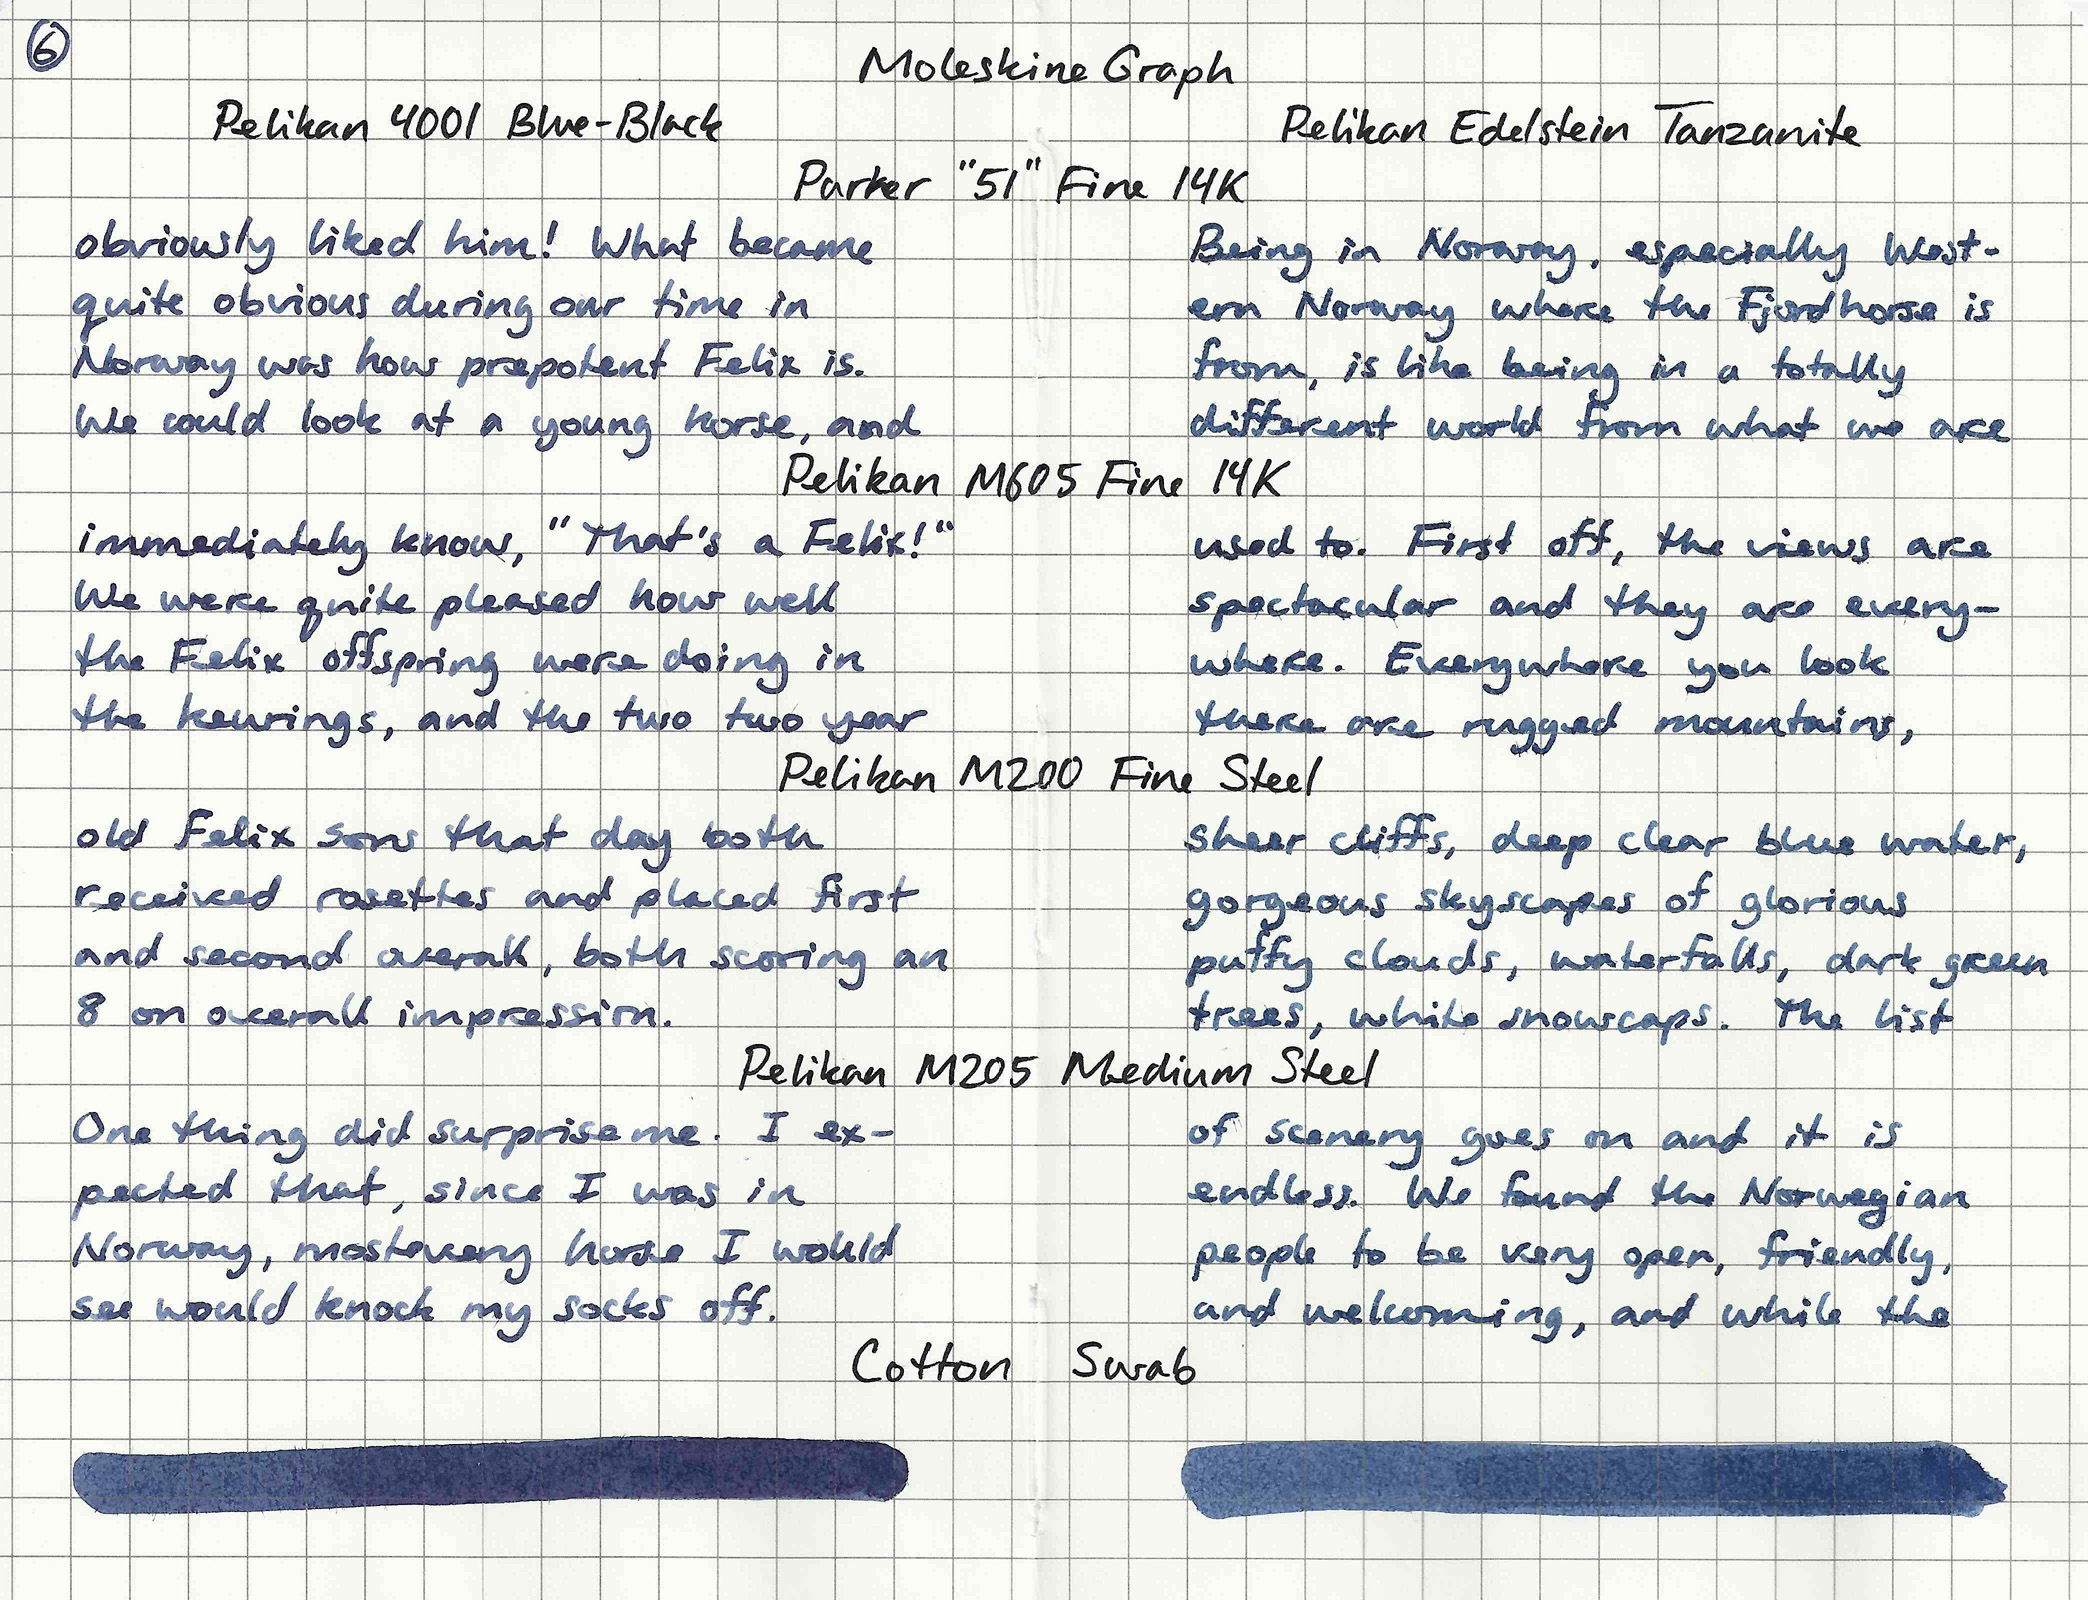 6
Moleskine Graph
Pelikan 4001 Blue-Black
Pelikan Edelstein Tanzanite
Parker "51" Fine 14K
obviously liked him! What became
quite obvious during our time in
Norway was how prepotent Felix is.
We could look at a young horse, and
Being in Norway, especially West-
ern Norway where the Fjordhorse is
from, is like being in a totally
different world from what we are
Pelikan M605 Fine 14K
immediately know, "That's a Felix!"
We were quite pleased how well
the Felix offspring were doing in
the keurings, and the two two year
used to. First off, the views are
spectacular and they are every-
where. Everywhere you look
there are rugged mountains,
Pelikan M200 Fine Steel
old Felix sons that day both
received rosettes and placed first
and second overall, both scoring an
8 on overall impression.
sheer cliffs, deep clear blue water,
gorgeous skyscapes of glorious
puffy clouds, waterfalls, dark green
trees, white snowscaps. The list
Pelikan M205 Medium Steel
One thing did surprise me. I ex-
pected that, since I was in
Norway, most every horse I would
see would knock my socks off.
of scenery goes on and it is
endless. We found the Norwegian
people to be very open, friendly,
and welcoming, and while the
Cotton Swab